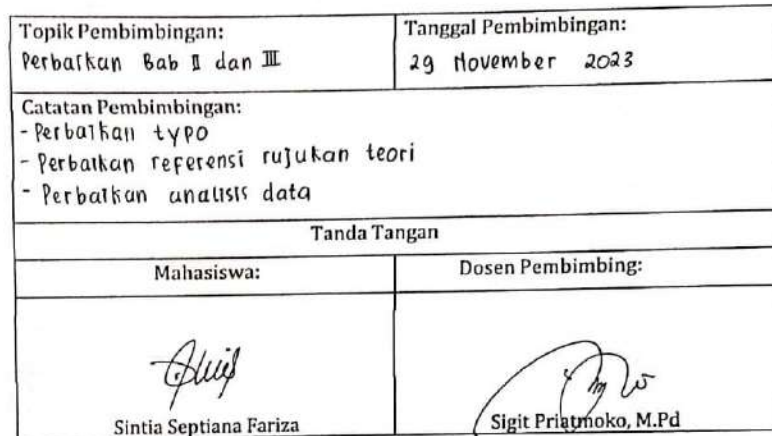 Topik Pembimbingan:
Perbaikan Bab II dan III
Tanggal Pembimbingan:
29 November 2023
Catatan Pembimbingan:
- Perbaikan typo
- Perbaikan referensi rujukan teori
- Perbaikan analisis data
Tanda Tangan
Mahasiswa:
Dosen Pembimbing:
Sintia Septiana Fariza
Sigit Priatmoko, M.Pd